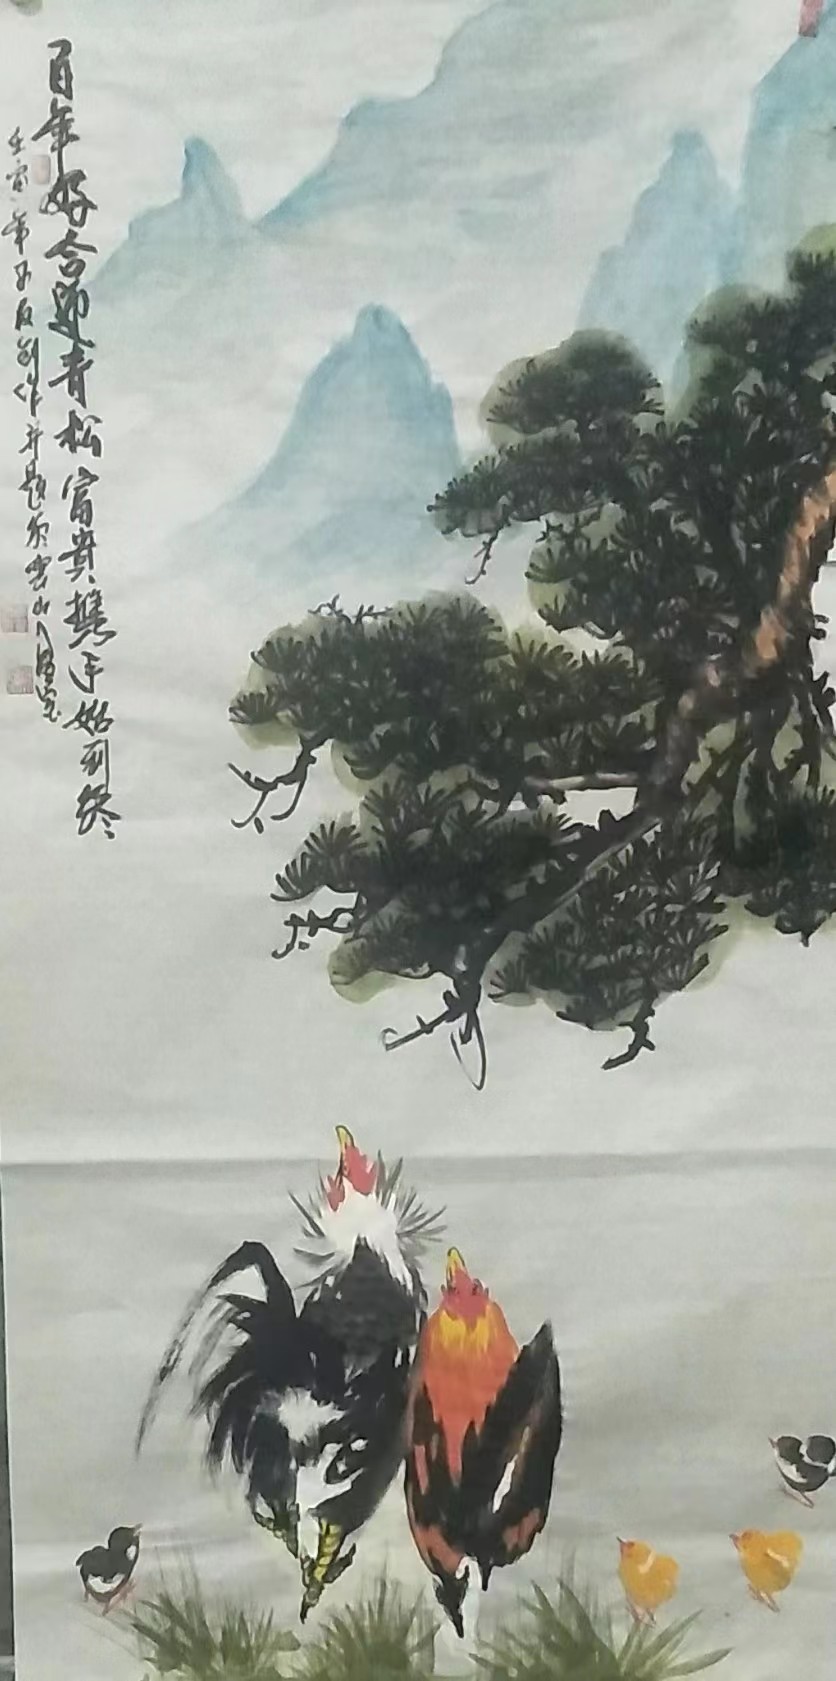 百年好合迎青松富贵携手始到终
壬寅年五月创作并题尔云山人昌宝